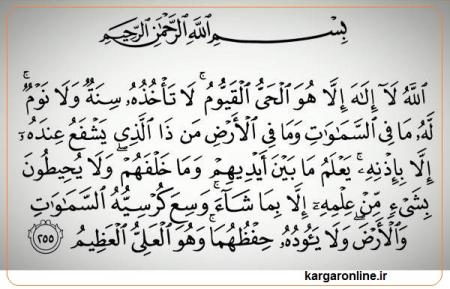 بِسْمِ اللَّهِ الرَّحْمَٰنِ الرَّحِيمِ
اللَّهُ لَا إِلَٰهَ إِلَّا هُوَ الْحَيُّ الْقَيُّومُ ۚ لَا تَأْخُذُهُ سِنَةٌ وَلَا نَوْمٌ ۚ
لَهُ مَا فِي السَّمَاوَاتِ وَمَا فِي الْأَرْضِ مَن ذَا الَّذِي يَشْفَعُ عِندَهُ
إِلَّا بِإِذْنِهِ ۚ يَعْلَمُ مَا بَيْنَ أَيْدِيهِمْ وَمَا خَلْفَهُمْ ۖ وَلَا يُحِيطُونَ
بِشَيْءٍ مِّنْ عِلْمِهِ إِلَّا بِمَا شَاءَ ۚ وَسِعَ كُرْسِيُّهُ السَّمَاوَاتِ
وَالْأَرْضَ ۖ وَلَا يَئُودُهُ حِفْظُهُمَا ۚ وَهُوَ الْعَلِيُّ الْعَظِيمُ ٢٥٥
kargaronline.ir